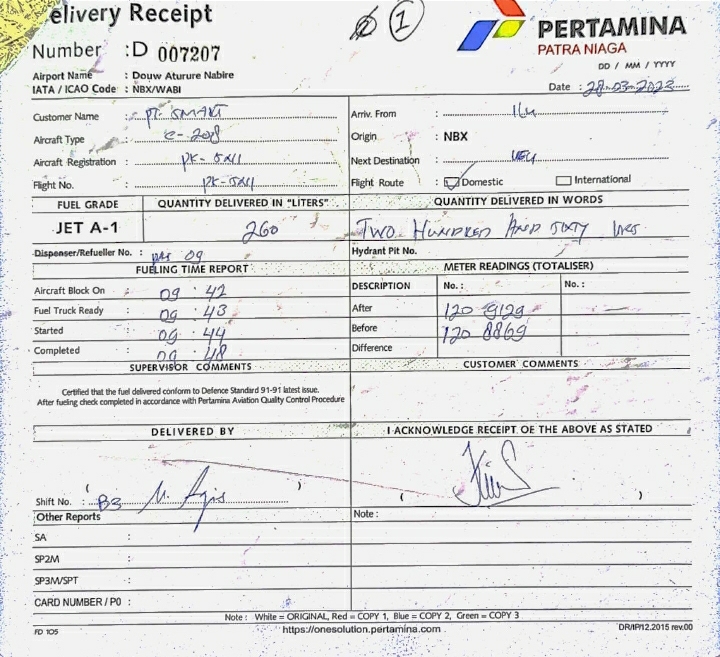 elivery Receipt
1
PERTAMINA
PATRA NIAGA
Number : D 007207
DD / MM / YYYY
Airport Name : Douw Aturure Nabire
IATA / ICAO Code : NBX/WABI
Date : 28-03-2023
Customer Name : PT. SMART
Arriv. From : ILU
Aircraft Type : C-208
Origin : NBX
Aircraft Registration : PK-SNI
Next Destination :
Flight No. : PK-SNI
Flight Route : Domestic International
FUEL GRADE
QUANTITY DELIVERED IN "LITERS"
QUANTITY DELIVERED IN WORDS
JET A-1
260
TWO HUNDRED AND SIXTY LTRS
Dispenser/Refueller No. : 09
Hydrant Pit No.
FUELING TIME REPORT
METER READINGS (TOTALISER)
Aircraft Block On : 09 : 42
DESCRIPTION No. : No. :
Fuel Truck Ready : 09 : 43
After 120 9129 —
Started : 09 : 44
Before 120 8869
Completed : 09 : 48
Difference
SUPERVISOR COMMENTS
CUSTOMER COMMENTS
Certified that the fuel delivered conform to Defence Standard 91-91 latest issue.
After fueling check completed in accordance with Pertamina Aviation Quality Control Procedure
DELIVERED BY
I ACKNOWLEDGE RECEIPT OF THE ABOVE AS STATED
( )
( )
Shift No. : B3
Other Reports
Note :
SA :
SP2M :
SP3M/SPT :
CARD NUMBER / PO :
Note : White = ORIGINAL, Red = COPY 1, Blue = COPY 2, Green = COPY 3
FD 105
https://onesolution.pertamina.com
DR/IP/12.2015 rev.00